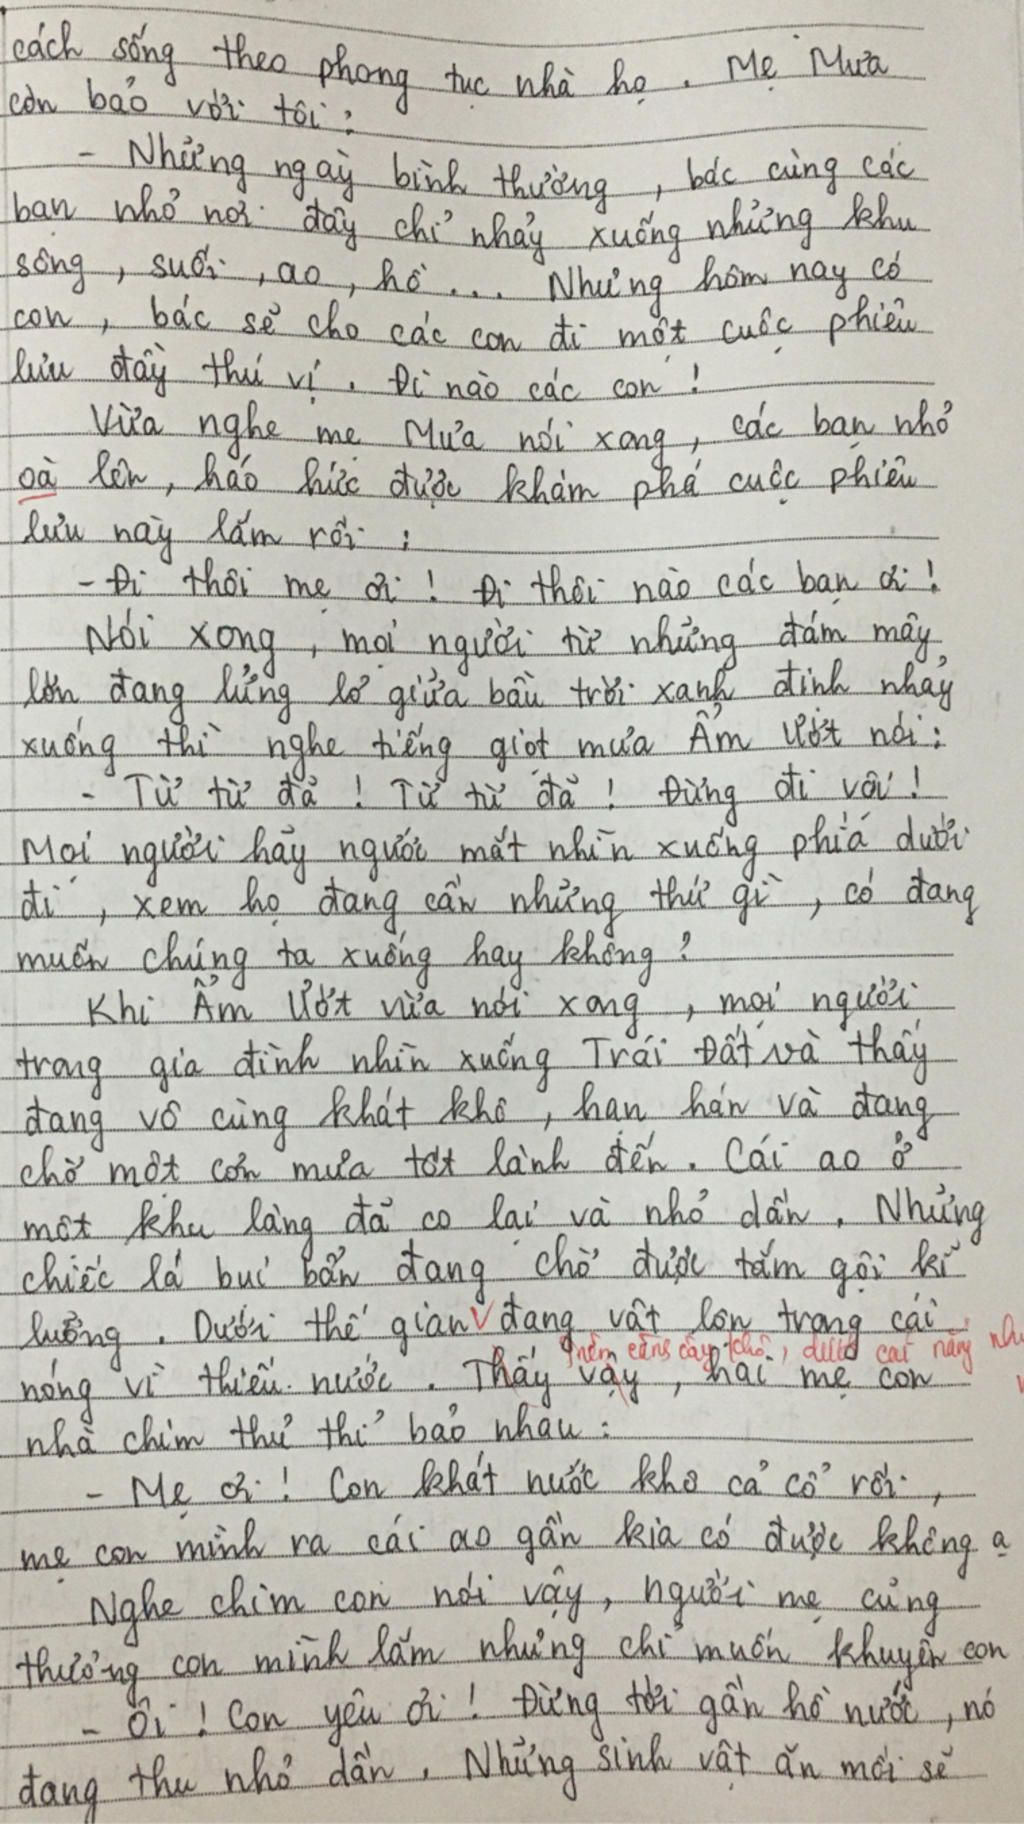 cách sống theo phong tục nhà họ. Mẹ Mưa
còn bảo với tôi:
- Những ngày bình thường, bác cùng các
bạn nhỏ nơi đây chỉ nhảy xuống những khu
sông, suối, ao, hồ... Nhưng hôm nay có
con, bác sẽ cho các con đi một cuộc phiêu
lưu đầy thú vị. Đi nào các con!
Vừa nghe mẹ Mưa nói xong, các bạn nhỏ
oà lên, háo hức được khám phá cuộc phiêu
lưu này lắm rồi:
- Đi thôi mẹ ơi! Đi thôi nào các bạn ơi!
Nói xong, mọi người từ những đám mây
lớn đang lửng lơ giữa bầu trời xanh định nhảy
xuống thì nghe tiếng giọt mưa Ẩm Ướt nói:
- Từ từ đã! Từ từ đã! Đừng đi vội!
Mọi người hãy ngước mắt nhìn xuống phía dưới
đi, xem họ đang cần những thứ gì, có đang
muốn chúng ta xuống hay không?
Khi Ẩm Ướt vừa nói xong, mọi người
trong gia đình nhìn xuống Trái Đất và thấy
đang vô cùng khát khô, hạn hán và đang
chờ một cơn mưa tốt lành đến. Cái ao ở
một khu làng đã co lại và nhỏ dần. Những
chiếc lá bụi bẩn đang chờ được tắm gội kĩ
lưỡng. Dưới thế gian v đang vật lộn trong cái
cây khô, dưới cái nắng
nóng vì thiếu nước. Thấy vậy, hai mẹ con
nhà chim thủ thỉ bảo nhau:
- Mẹ ơi! Con khát nước khô cả cổ rồi,
mẹ con mình ra cái ao gần kia có được không ạ
Nghe chim con nói vậy, người mẹ cũng
thương con mình lắm nhưng chỉ muốn khuyên con
- Ôi! Con yêu ơi! Đừng tới gần hồ nước, nó
đang thu nhỏ dần. Những sinh vật ăn mồi sẽ